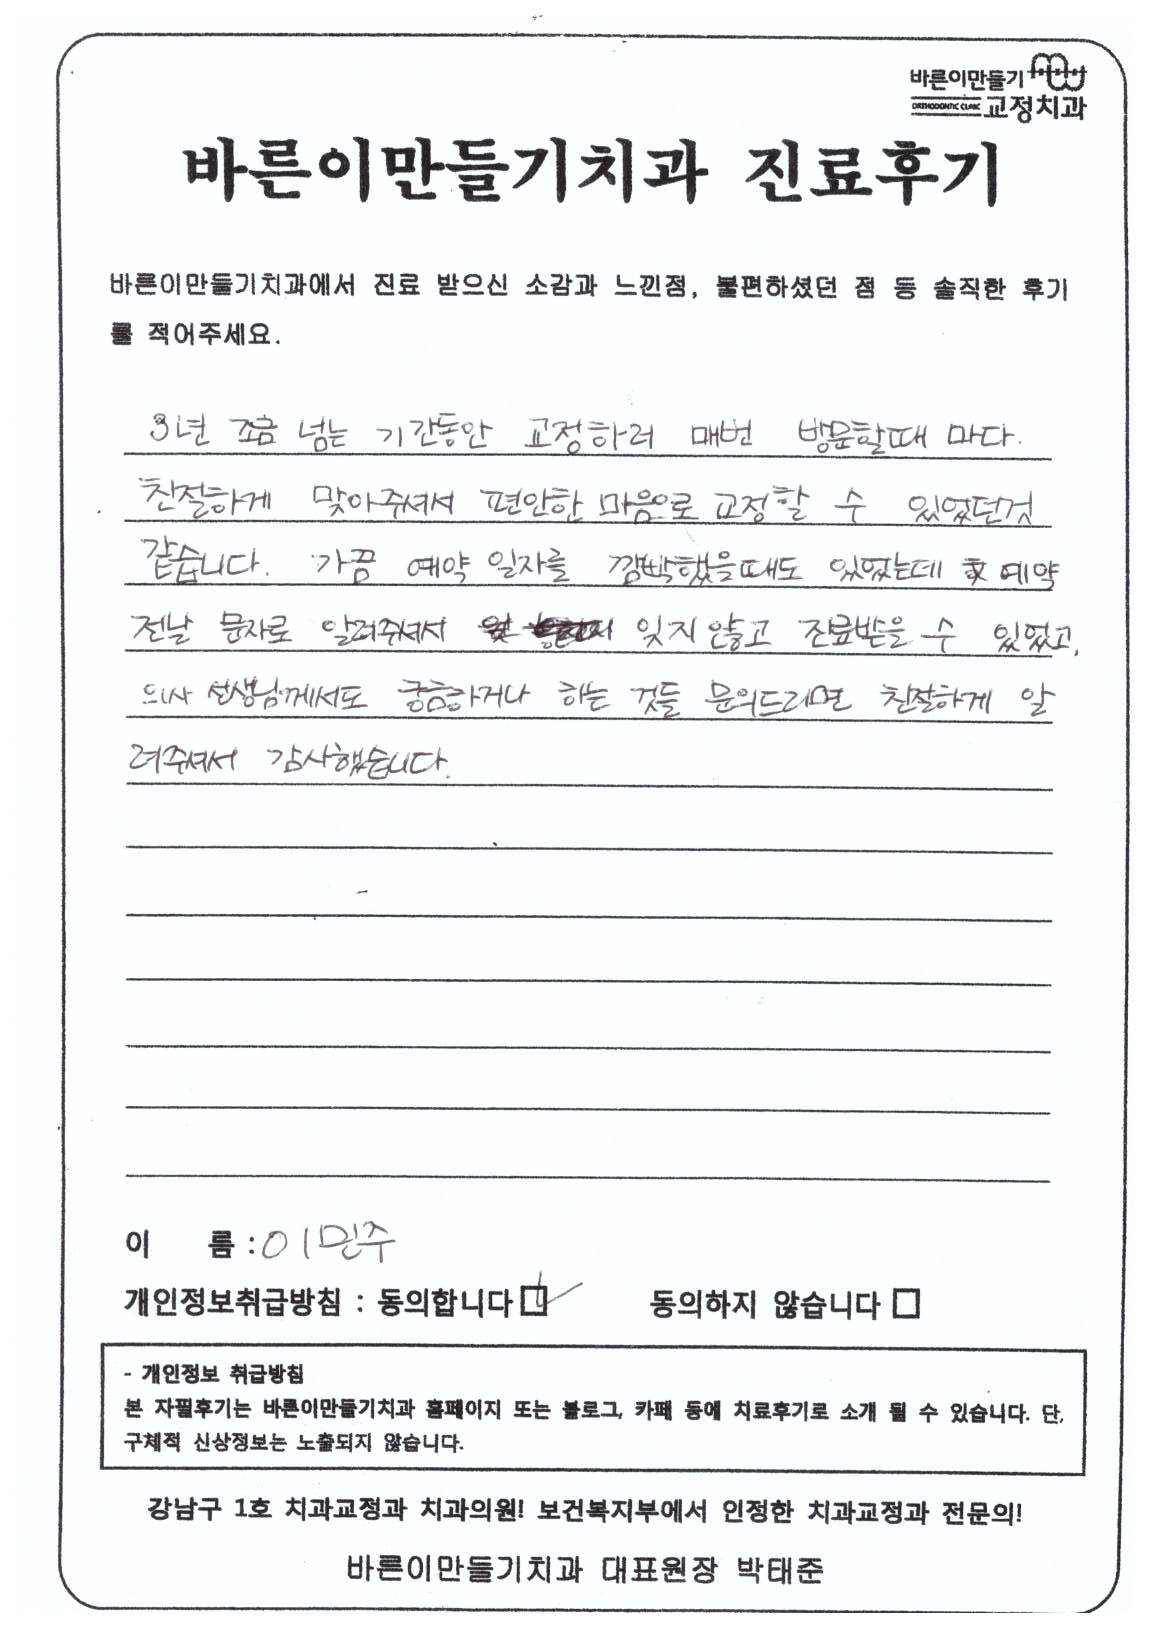 바른이만들기
ORTHODONTIC CLINIC 교정치과
바른이만들기치과 진료후기
바른이만들기치과에서 진료 받으신 소감과 느낀점, 불편하셨던 점 등 솔직한 후기
를 적어주세요.
3년 조금 넘는 기간동안 교정하러 매번 방문할때 마다.
친절하게 맞아주셔서 편안한 마음으로 교정할 수 있었던것
같습니다. 가끔 예약 일자를 깜빡했을때도 있었는데 예약
전날 문자로 알려주셔서 잊지 않고 진료받을 수 있었고,
의사 선생님께서도 궁금하거나 하는 것들 문의드리면 친절하게 알
려주셔서 감사했습니다.
이 름 : 이민주
개인정보취급방침 : 동의합니다 동의하지 않습니다
- 개인정보 취급방침
본 자필후기는 바른이만들기치과 홈페이지 또는 블로그, 카페 등에 치료후기로 소개 될 수 있습니다. 단,
구체적 신상정보는 노출되지 않습니다.
강남구 1호 치과교정과 치과의원! 보건복지부에서 인정한 치과교정과 전문의!
바른이만들기치과 대표원장 박태준